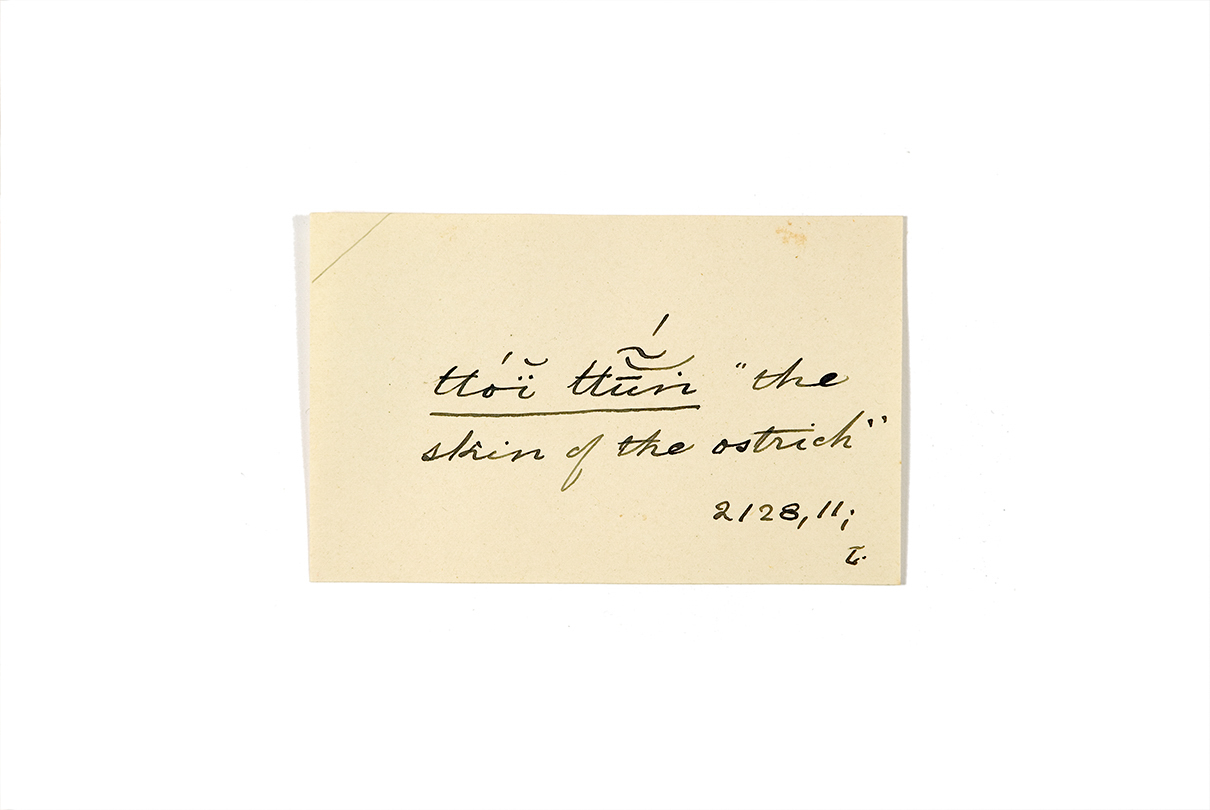 ttóï̆ ttū̃́ṅ "the
skin of the ostrich"
2128, 11;